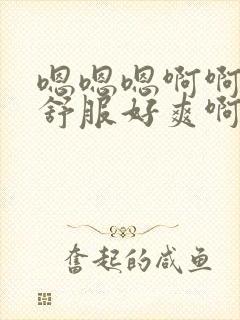 嗯嗯嗯啊啊
舒服好爽啊
奮起的咸鱼